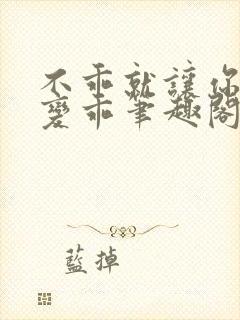 不乖就讓你
變乖筆趣閣
藍掉